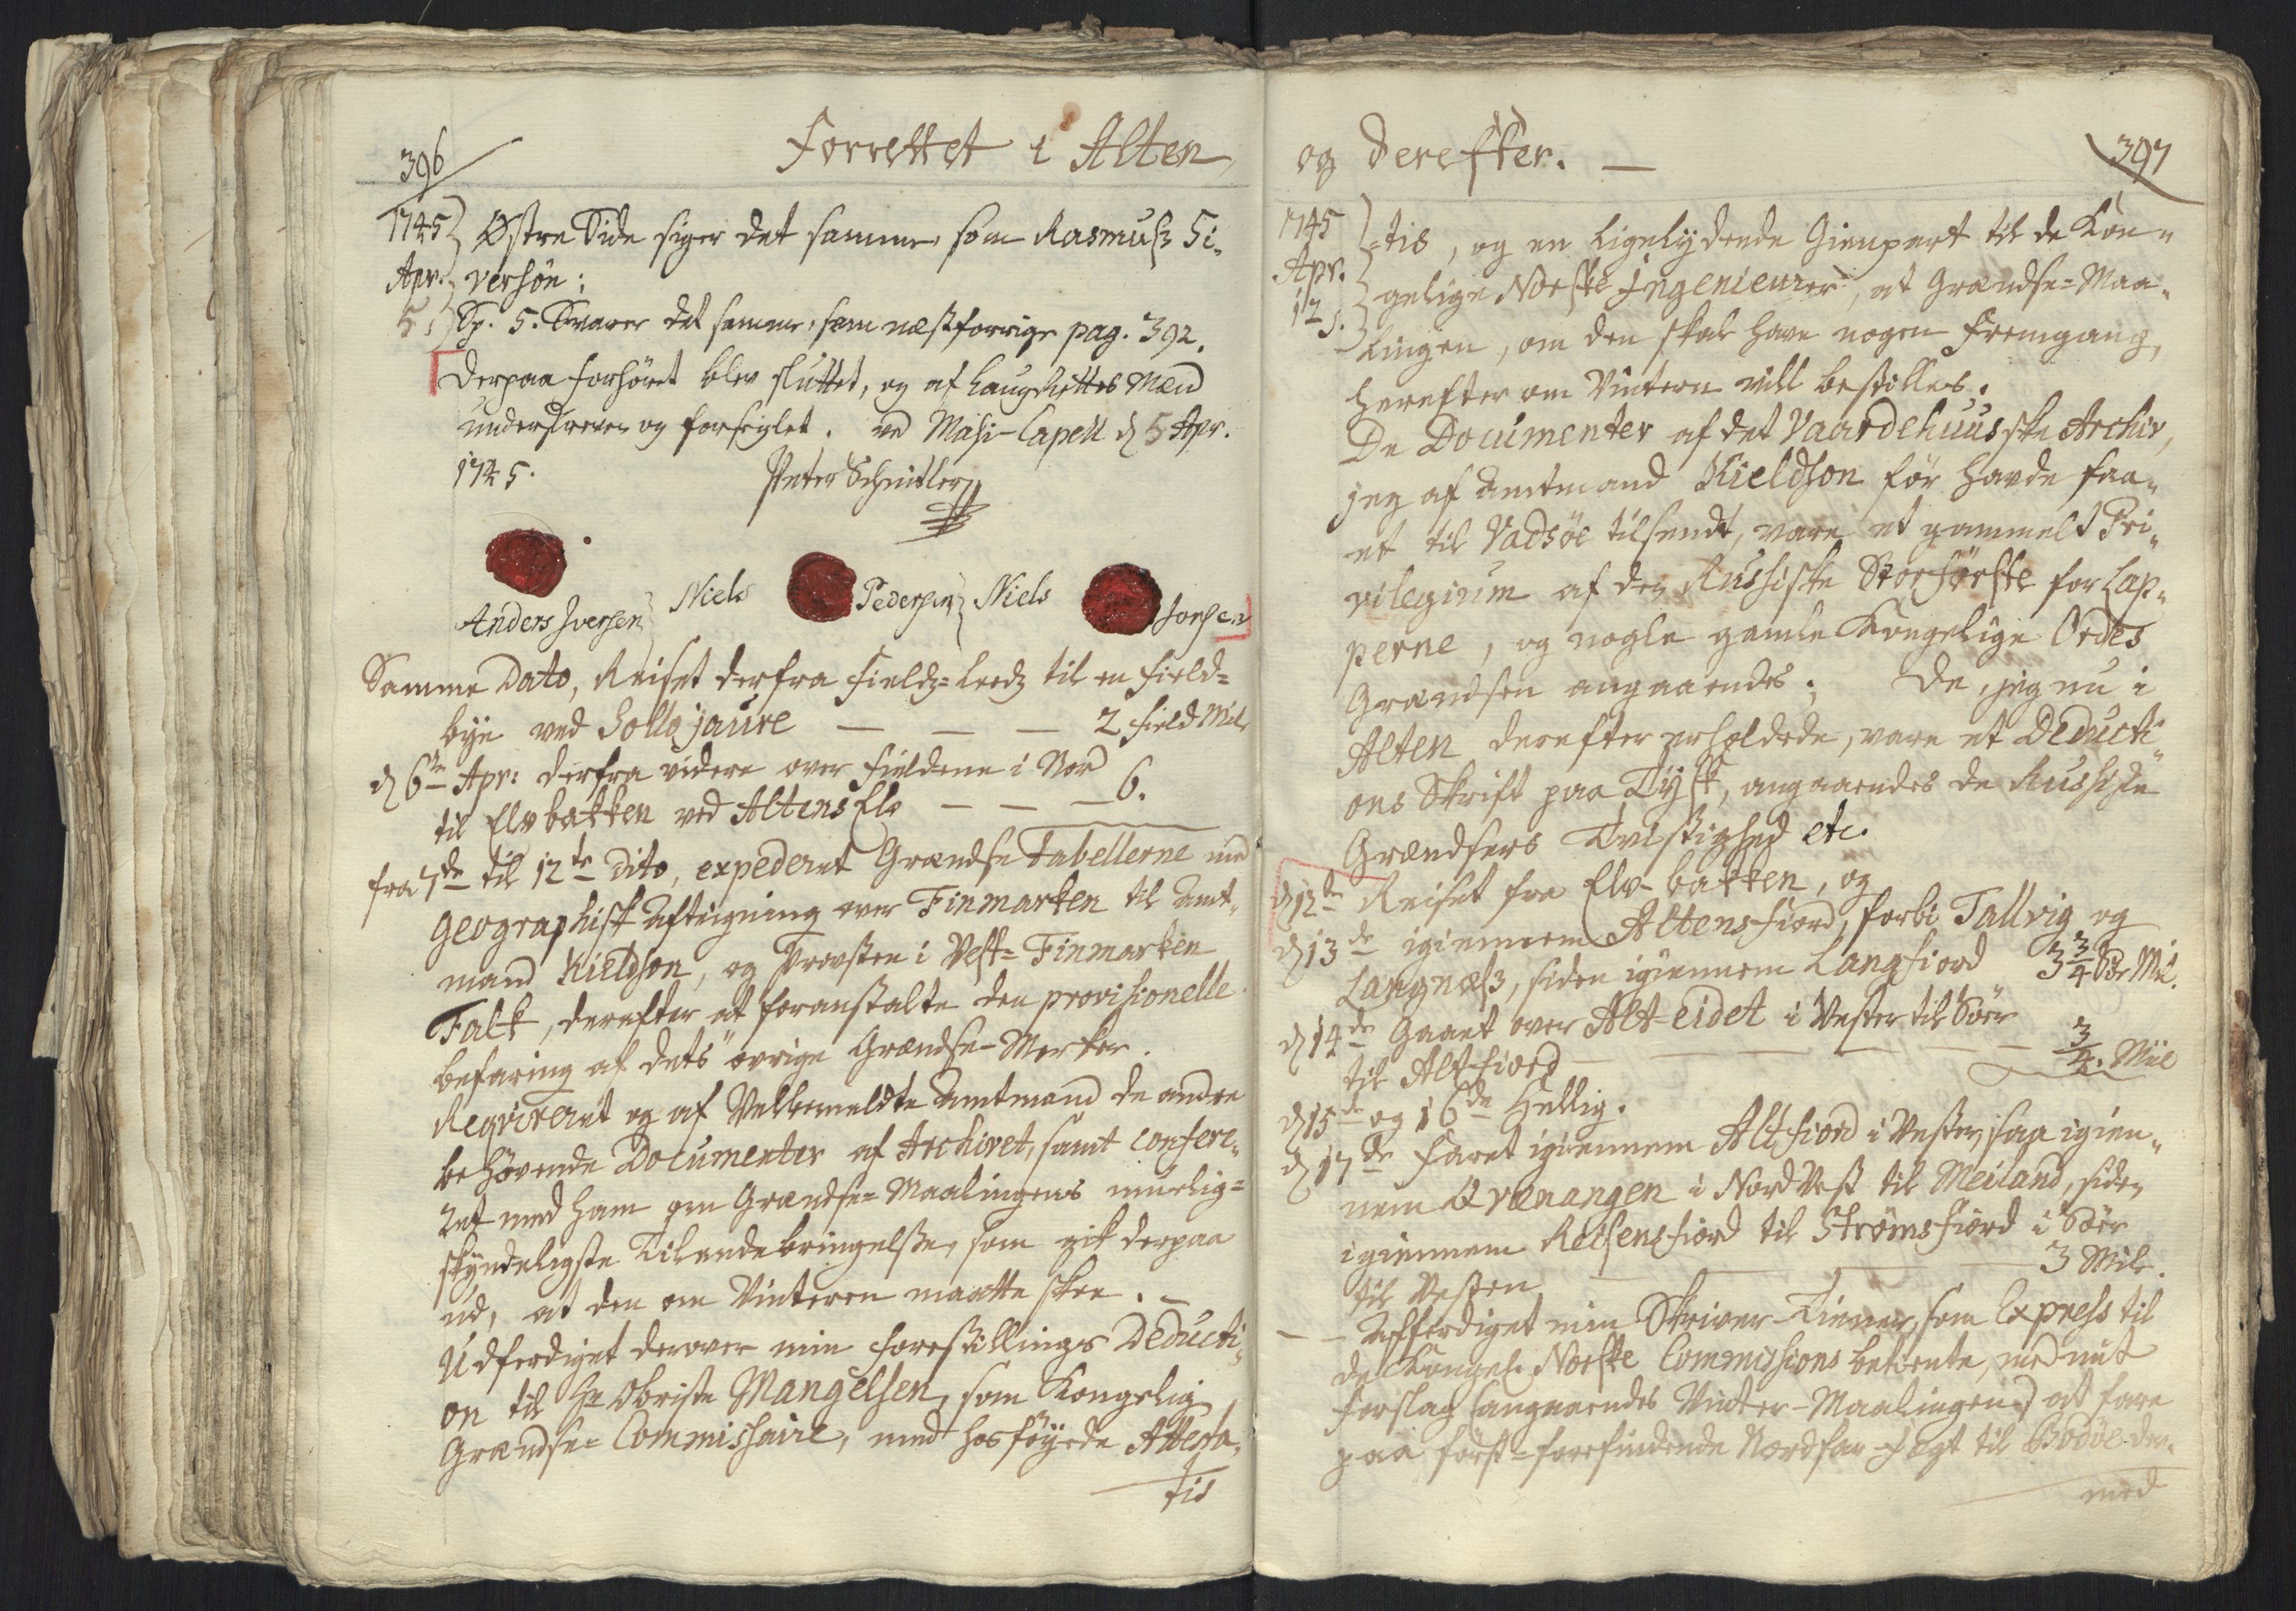 396
Forrettet i Alten
1745 Østre Side siger det samme, som Rasmus Si-
Apr. versøn:
5. Sp. 5. Svarer det samme, som næstforrige pag. 392.
Derpaa forhöret blev sluttet, og af Laugrettes Mænd
underskreven og forseiglet. ved Masi-Capell d 5 Apr.
1745. Peter Schnitler
Anders Iversen Niels Pedersen Niels Jonsen
Samme Dato, Reiset derfra Fieldz-Leedz til en Field-
bye ved Sollojaure — — — 2 field Mile
d 6te Apr: derfra videre over Fieldene i Nord
til Elvbakken ved Altens Elv — — — 6.
fra 7de til 12te dito, expederet Grændse Tabellerne med
Geographisk Aftegning over Finmarken til Amt-
mand Kieldson, og Provsten i Vest-Finmarken
Falk, derefter at foranstalte den provisionelle
befaring af dets övrige Grændse-Merker.
Reqvireret og af Velbemeldte Amtmand de andre
behövende Documenter af Archivet, samt confere-
ret med ham om Grændse-Maalingens muelig-
skyndeligste Tilendebringelse, som gik derpaa
ud, at den om Vinteren maatte skee. –
Udferdiget derover min forestillings Deducti-
on til Hr Obriste Mangelsen, som Kongelig
Grændse-Commissaire, med hosföyede Attesta-
tis
og derefter. —
397
1745 -tis, og en ligelydende Gienpart til de Kon-
Apr. gelige Norske Ingenieurer, at Grændse-Maa-
12 lingen, om den skal have nogen Fremgang,
herefter om Vintern vill bestilles.
De Documenter af det Vaardehuusske Archiv,
jeg af Amtmand Kieldson för havde faa-
et til Vadsöe tilsendt, vare et gammelt Pri-
vilegium af den Russiske Storförste for Lap-
perne, og nogle gamle Kongelige Ordes
Grændsen angaaendes; De, jeg nu i
Alten derefter erholdede, vare et Deducti-
ons Skrift paa Tysk, angaaendes de Russiske
Grændsers Tvistighed etc.
d 12te Reiset fra Elv-bakken, og
d 13de igiennem Altensfiord, forbi Tallvig og
Langnæs, siden igiennem Langfiord 3 3/4 Söe Mil.
d 14de Gaaet over Alt-eidet i Vester til Söer
til Alt-fiord — — — 3/4. Miil
d 15de og 16de Hellig.
d 17de Faret igiennem Altfiord i Vester, saa igien-
nem Qvænangen i NordVest til Meiland, siden
igiennem Reisensfiord til Strömsfiord i Söer
til Vesten — — — 3 Mile.
— – Afferdiget min Skriver-Tienner, som Express til
de Kongel: Norske Commissions betiente, med mit
Forslag (angaaendes Vinter-Maalingen) at fare
paa först-forefindende Nordfar-Jagt til Bodöe der-
med